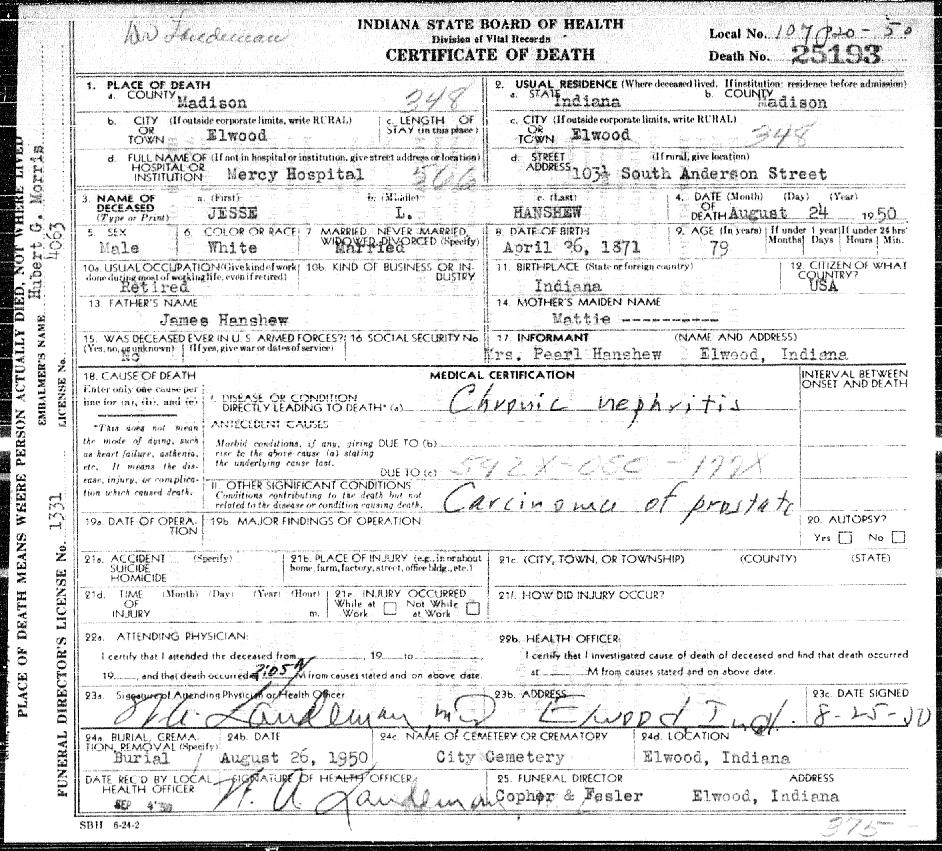 INDIANA STATE BOARD OF HEALTH
Division of Vital Records
CERTIFICATE OF DEATH
Local No. 107
Death No. 25193
1. PLACE OF DEATH
a. COUNTY Madison 348
b. CITY (If outside corporate limits, write RURAL) OR TOWN Elwood
c. LENGTH OF STAY (in this place)
d. FULL NAME OF (If not in hospital or institution, give street address or location) HOSPITAL OR INSTITUTION Mercy Hospital 506
2. USUAL RESIDENCE (Where deceased lived. If institution: residence before admission)
a. STATE Indiana b. COUNTY Madison
c. CITY (If outside corporate limits, write RURAL) OR TOWN Elwood 348
d. STREET ADDRESS (If rural, give location) 103½ South Anderson Street
3. NAME OF DECEASED (Type or Print) a. (First) JESSE b. (Middle) L. c. (Last) HANSHEW
4. DATE OF DEATH (Month) (Day) (Year) August 24 1950
5. SEX Male
6. COLOR OR RACE White
7 MARRIED, NEVER MARRIED, WIDOWED, DIVORCED (Specify) Married
8. DATE OF BIRTH April 26, 1871
9. AGE (In years) 79 If under 1 year Months Days If under 24 hrs Hours Min.
10a. USUAL OCCUPATION (Give kind of work done during most of working life, even if retired) Retired
10b. KIND OF BUSINESS OR INDUSTRY
11. BIRTHPLACE (State or foreign country) Indiana
12. CITIZEN OF WHAT COUNTRY? USA
13. FATHER'S NAME
James Hanshew
14. MOTHER'S MAIDEN NAME
Mattie --------
15. WAS DECEASED EVER IN U. S. ARMED FORCES? (Yes, no, or unknown) (If yes, give war or dates of service) No
16 SOCIAL SECURITY No.
17. INFORMANT (NAME AND ADDRESS)
Mrs. Pearl Hanshew Elwood, Indiana
18. CAUSE OF DEATH
Enter only one cause per line for (a), (b), and (c)
*This does not mean the mode of dying, such as heart failure, asthenia, etc. It means the disease, injury, or complication which caused death.
MEDICAL CERTIFICATION
INTERVAL BETWEEN ONSET AND DEATH
I. DISEASE OR CONDITION DIRECTLY LEADING TO DEATH* (a) Chronic nephritis
ANTECEDENT CAUSES
Morbid conditions, if any, giving rise to the above cause (a) stating the underlying cause last.
DUE TO (b)
DUE TO (c) 592X-050-177X
II. OTHER SIGNIFICANT CONDITIONS
Conditions contributing to the death but not related to the disease or condition causing death. Carcinoma of prostate
19a DATE OF OPERATION
19b MAJOR FINDINGS OF OPERATION
20. AUTOPSY?
Yes No
21a. ACCIDENT SUICIDE HOMICIDE (Specify)
21b. PLACE OF INJURY (e.g., in or about home, farm, factory, street, office bldg., etc.)
21c. (CITY, TOWN, OR TOWNSHIP) (COUNTY) (STATE)
21d. TIME OF INJURY (Month) (Day) (Year) (Hour) m.
21e. INJURY OCCURRED While at Work Not While at Work
21f. HOW DID INJURY OCCUR?
22a. ATTENDING PHYSICIAN:
I certify that I attended the deceased from , 19 to ,
19 , and that death occurred at 2:05 M from causes stated and on above date.
22b. HEALTH OFFICER:
I certify that I investigated cause of death of deceased and find that death occurred
at M from causes stated and on above date.
23a. Signature of Attending Physician or Health Officer
W. A. Landeman MD
23b. ADDRESS
Elwood Ind.
23c. DATE SIGNED
8-25-50
24a. BURIAL, CREMATION, REMOVAL (Specify) Burial
24b. DATE August 26, 1950
24c. NAME OF CEMETERY OR CREMATORY City Cemetery
24d. LOCATION Elwood, Indiana
DATE REC'D BY LOCAL HEALTH OFFICER SEP 4 '50
SIGNATURE OF HEALTH OFFICER
W. A. Landeman
25. FUNERAL DIRECTOR ADDRESS
Copher & Fesler Elwood, Indiana
SBH 6-24-2
375-
PLACE OF DEATH MEANS WHERE PERSON ACTUALLY DIED, NOT WHERE LIVED
EMBALMER'S NAME Hubert G. Morris
FUNERAL DIRECTOR'S LICENSE No. 1331 LICENSE No. 4063